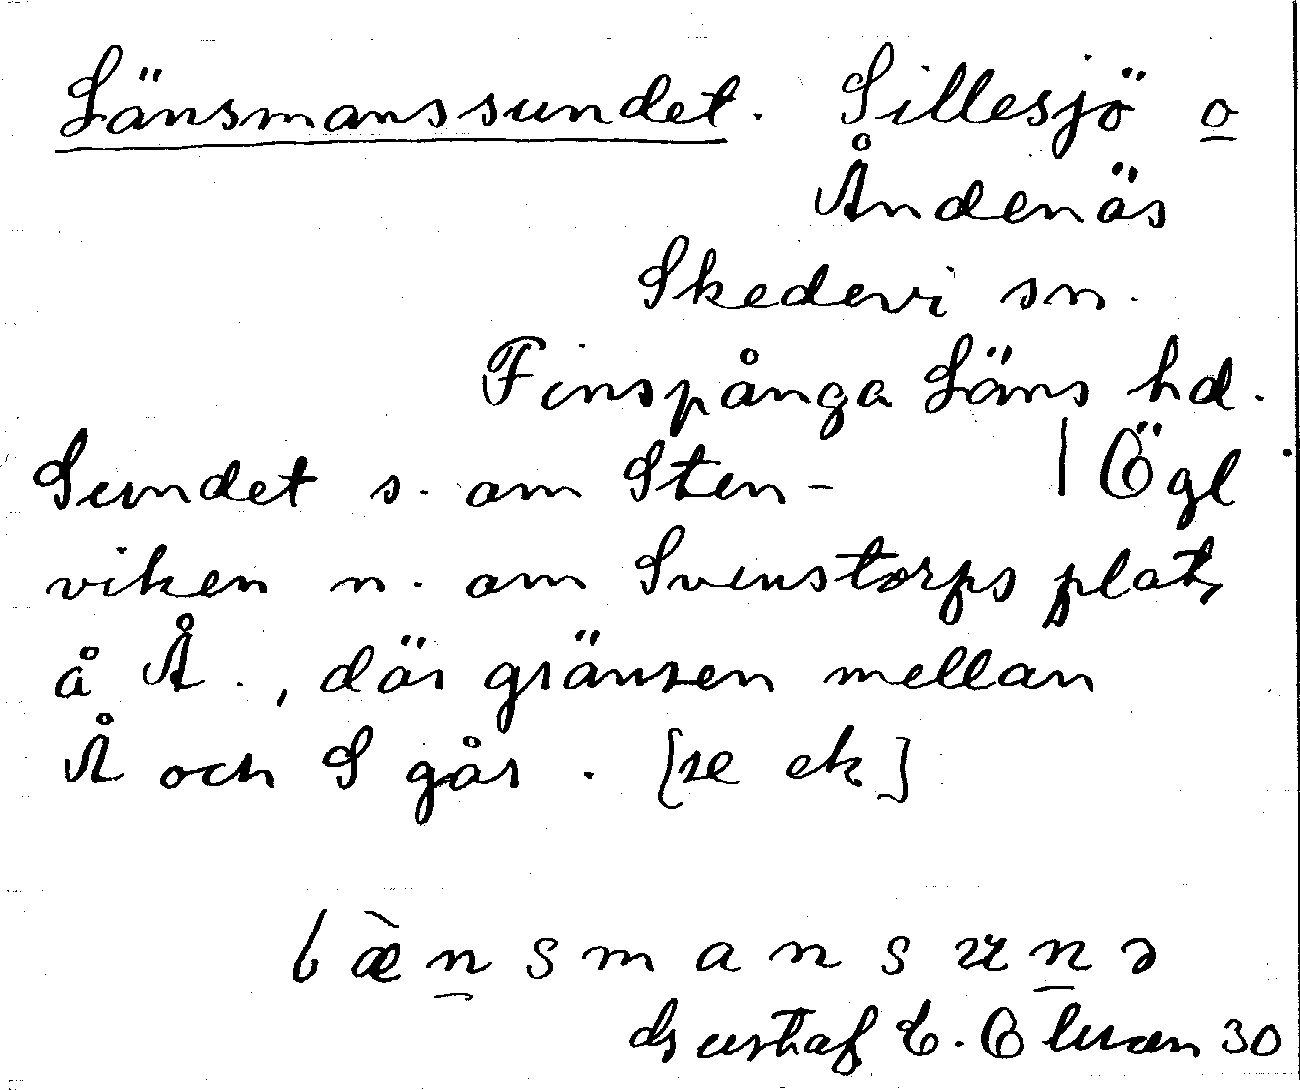 Länsmanssundet. Sillesjö o
Åndenäs
Skedevi sn.
Finspånga Läns hd.
Sundet s. om Sten- | Ögl
viken n. om Svenstorps plats
å Å., där gränsen mellan
Å och S går. [se ek]
Gustaf E. 30